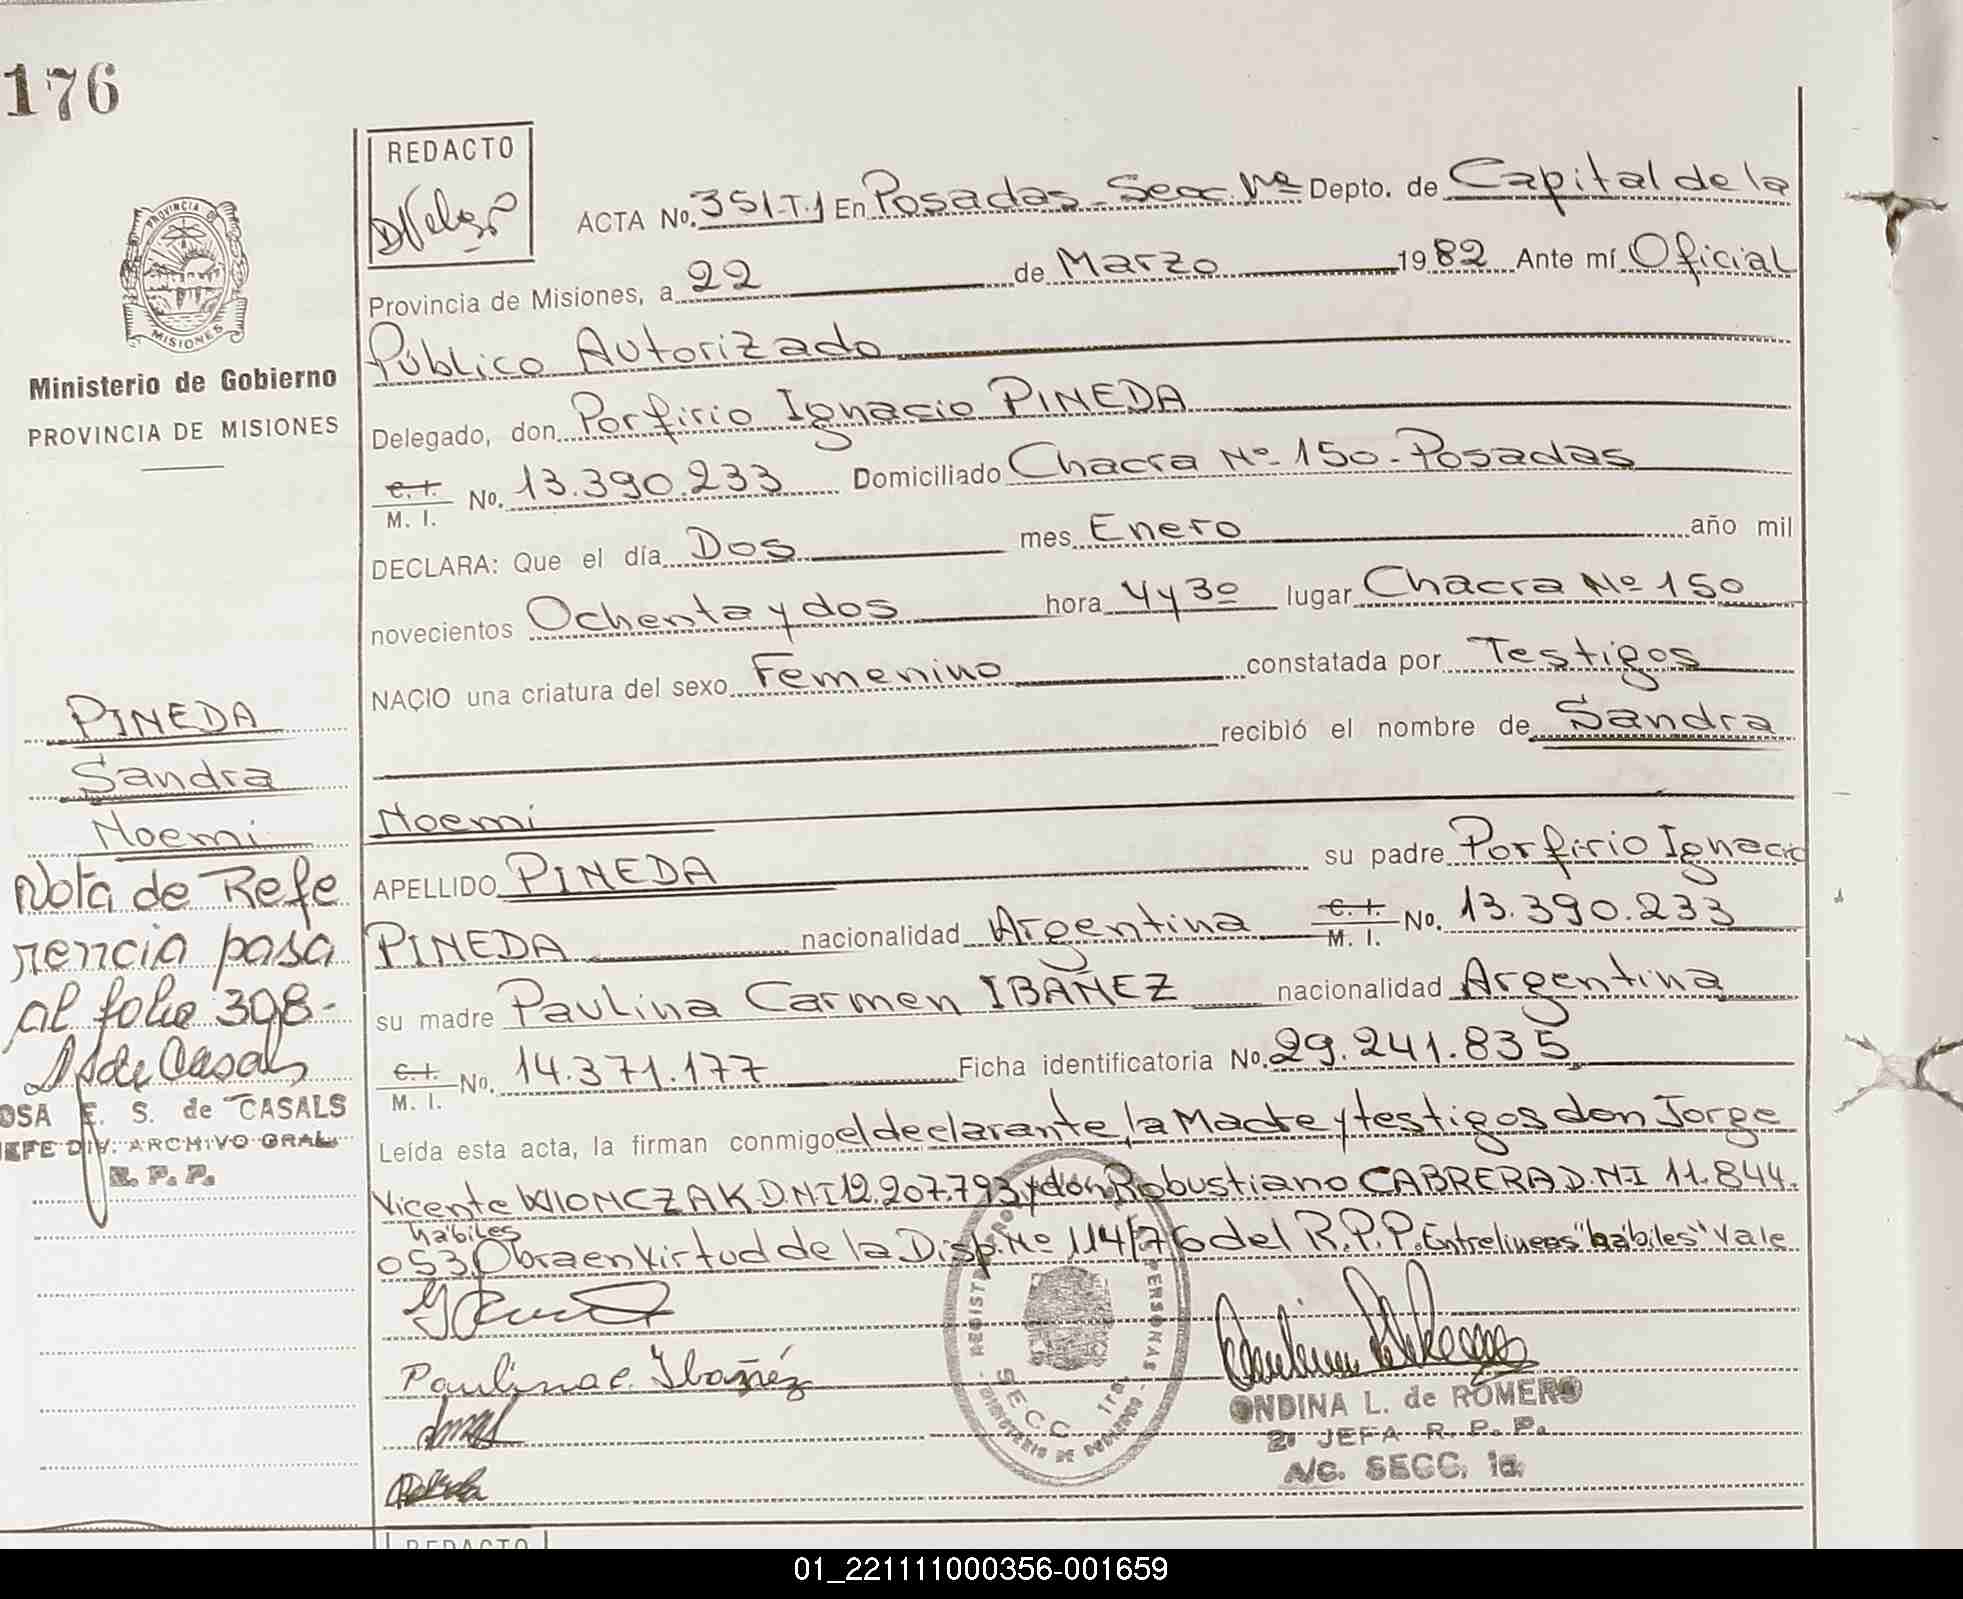 176
REDACTO
ACTA No. 351-T.1 En Posadas - Secc. 1ra Depto. de Capital de la
Provincia de Misiones, a 22 de Marzo 1982 Ante mí Oficial
Público Autorizado
Delegado, don Porfirio Ignacio PINEDA
C. I. M. I. No. 13.390.233 Domiciliado Chacra Nº 150 - Posadas
DECLARA: Que el día Dos mes Enero año mil
novecientos Ochenta y dos hora 4 y 30 lugar Chacra Nº 150
NACIO una criatura del sexo Femenino constatada por Testigos
recibió el nombre de Sandra
Noemi
APELLIDO PINEDA su padre Porfirio Ignacio
PINEDA nacionalidad Argentina C. I. M. I. No. 13.390.233
su madre Paulina Carmen IBAÑEZ nacionalidad Argentina
C. I. M. I. No. 14.371.177 Ficha identificatoria No. 29.241.835
Leída esta acta, la firman conmigo el declarante, la Madre y testigos don Jorge
Vicente WIONCZAK D.N.I 12.207.793 y don Robustiano CABRERA D.N.I 11.844.
hábiles
053. Obra en virtud de la Disp. Nº 114/76 del R.P.P. Entrelineas "hábiles" Vale
Paulina C. Ibañéz
ONDINA L. de ROMERO
2ª JEFA R. P. P.
A/C. SECC. 1a.
SECC. 1ra.
PROVINCIA DE
MISIONES
Ministerio de Gobierno
PROVINCIA DE MISIONES
PINEDA
Sandra
Noemi
Nota de Refe
rencia pasa
al folio 398-
OSA E. S. de CASALS
JEFE DIV. ARCHIVO GRAL.
R. P. P.
REDACTO
01_221111000356-001659